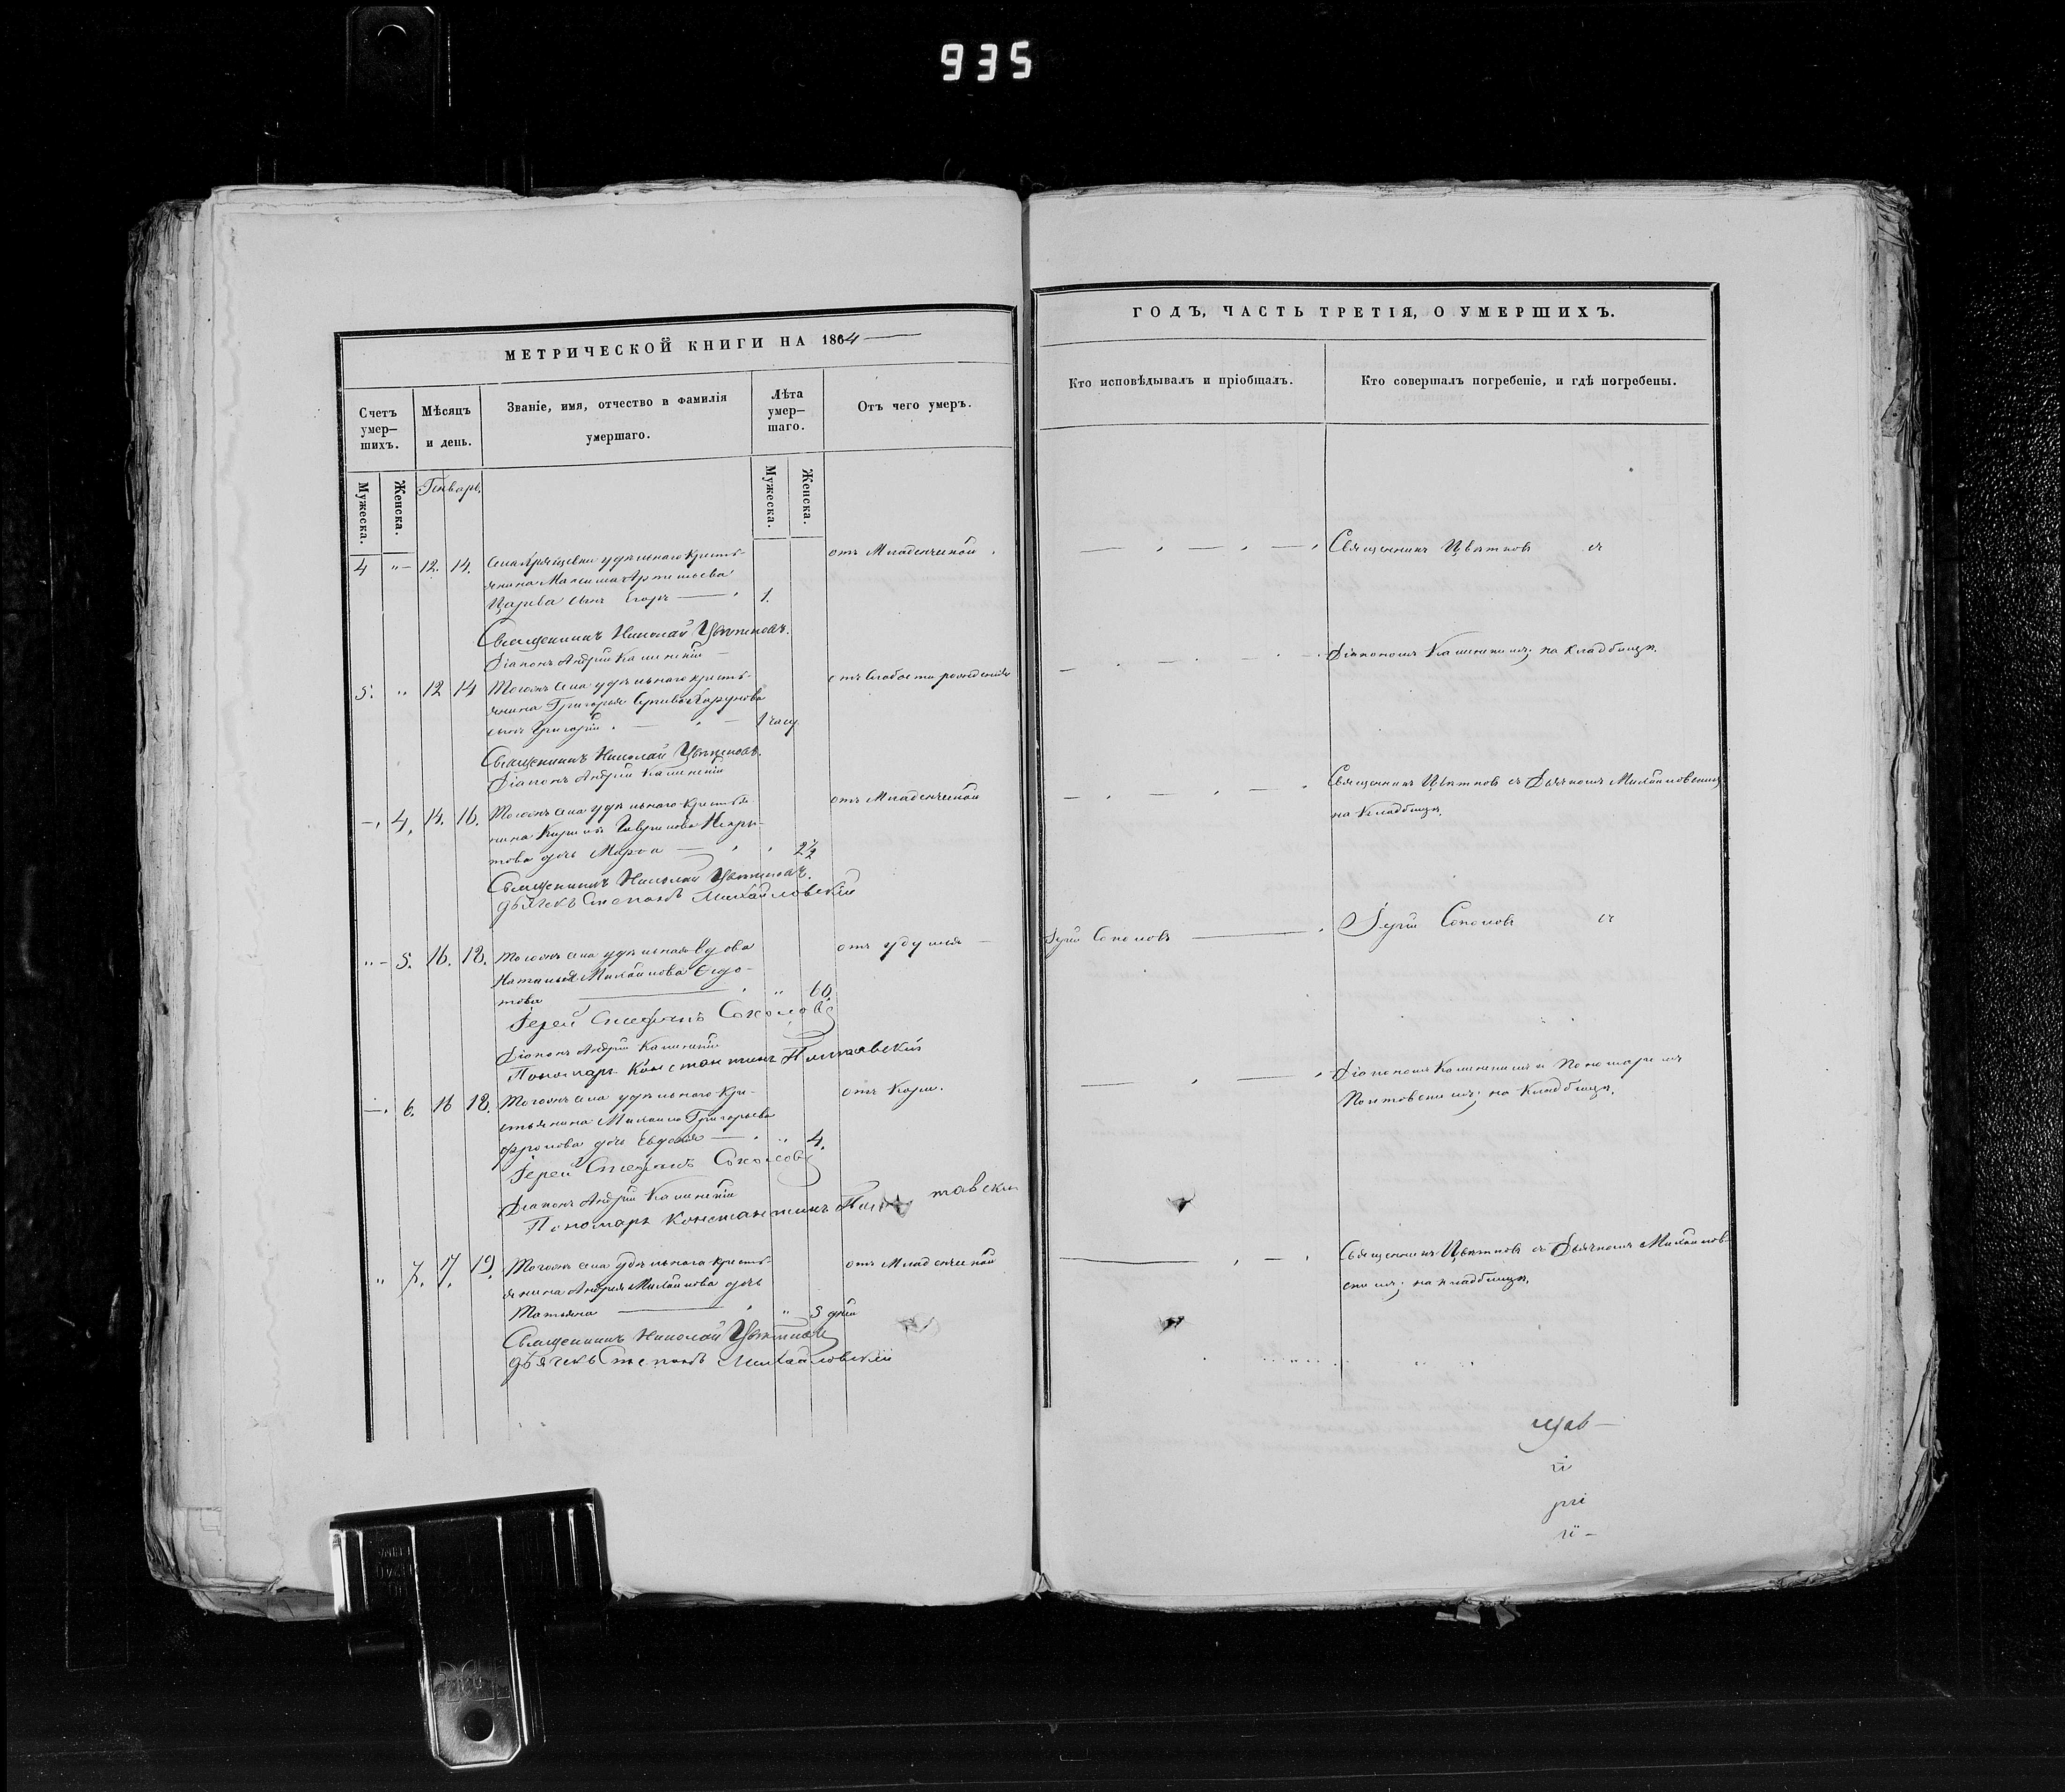 935
МЕТРИЧЕСКОЙ КНИГИ НА 1864
Счетъ умер-шихъ.
Мѣсяцъ и день.
Званіе, имя, отчество и фамилія умершаго.
Лѣта умер-шаго.
Отъ чего умеръ.
Мужеска.
Женска.
Генварь
Мужеска.
Женска.
4 "– 12. 14. удѣльнаго кресть-
янина Максима
сынъ Егоръ — 1.
отъ Младенческой
Священникъ Николай Цвѣтковъ.
Діаконъ Андрей
5. " 12 14 Тогожъ села удѣльнаго кресть-
янина Григорія
сынъ Григорій — 1 часу
отъ слабости рожденія
Священникъ Николай Цвѣтковъ.
Діаконъ Андрей
–, 4, 14. 16. Тогожъ села удѣльнаго крестья-
нина Гаврилова
дочь Марѳа — 2½
отъ Младенческой
Священникъ Николай Цвѣтковъ.
дьячекъ Степанъ Михайловскій
"– 5. 16. 18. Тогожъ села удѣльная вдова
Наталья Михайлова Ѳедо-
това — " 60.
отъ удушья
Іерей Стефанъ Соколовъ
Діаконъ Андрей
Пономарь Константинъ
–. 6. 16 18. Тогожъ села удѣльнаго кре-
стьянина Михаила Григорьева
Фролова дочь Евдокія — " 4.
отъ Кори.
Іерей Стефанъ Соколовъ
Діаконъ Андрей
Пономарь Константинъ
" 7. 17. 19. Тогожъ села удѣльнаго кресть-
янина Андрея Михайлова дочь
Татьяна — " 5 дней
отъ Младенческой
Священникъ Николай Цвѣтковъ
дьячекъ Степанъ Михайловскій
ГОДЪ, ЧАСТЬ ТРЕТІЯ, О УМЕРШИХЪ.
Кто исповѣдывалъ и пріобщалъ.
Кто совершалъ погребеніе, и гдѣ погребены.
Священникъ Цвѣтковъ съ
Діакономъ на кладбищѣ.
Священникъ Цвѣтковъ съ Дьячкомъ Михайловскимъ
на Кладбищѣ.
Іерей Соколовъ
Іерей Соколовъ съ
Діакономъ и Пономаремъ
на Кладбищѣ.
Священникъ Цвѣтковъ съ Дьячкомъ Михайлов-
скимъ; на кладбищѣ.